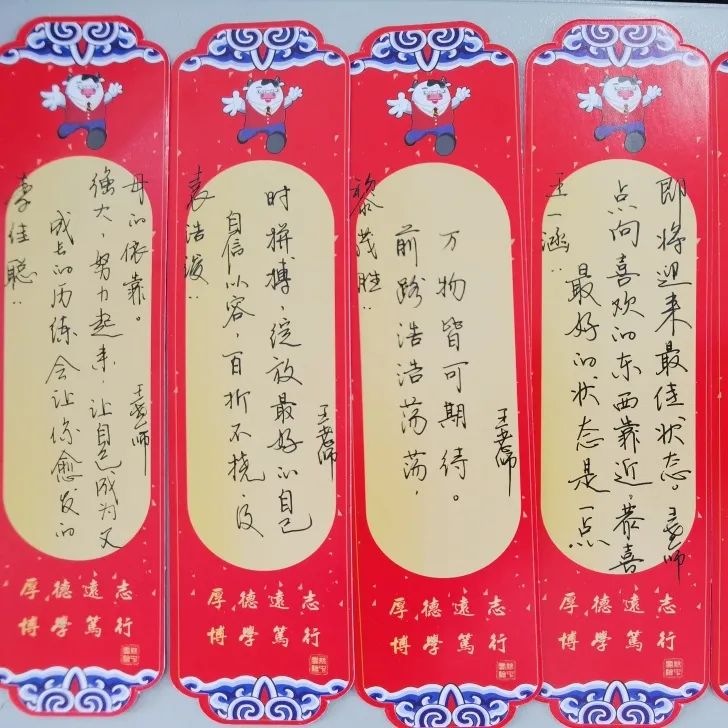 李佳聪:
成长的历练会让你愈发的
强大,努力起来,让自己成为父
母的依靠。
王老师
厚德遠志
博學篤行
袁浩浚:
自信从容,百折不挠,及
时拼搏,绽放最好的自己
王老师
厚德遠志
博學篤行
黎茂胜:
前路浩浩荡荡,
万物皆可期待。
王老师
厚德遠志
博學篤行
王一涵:
最好的状态是一点
点向喜欢的东西靠近,恭喜
即将迎来最佳状态。
王老师
厚德遠志
博學篤行